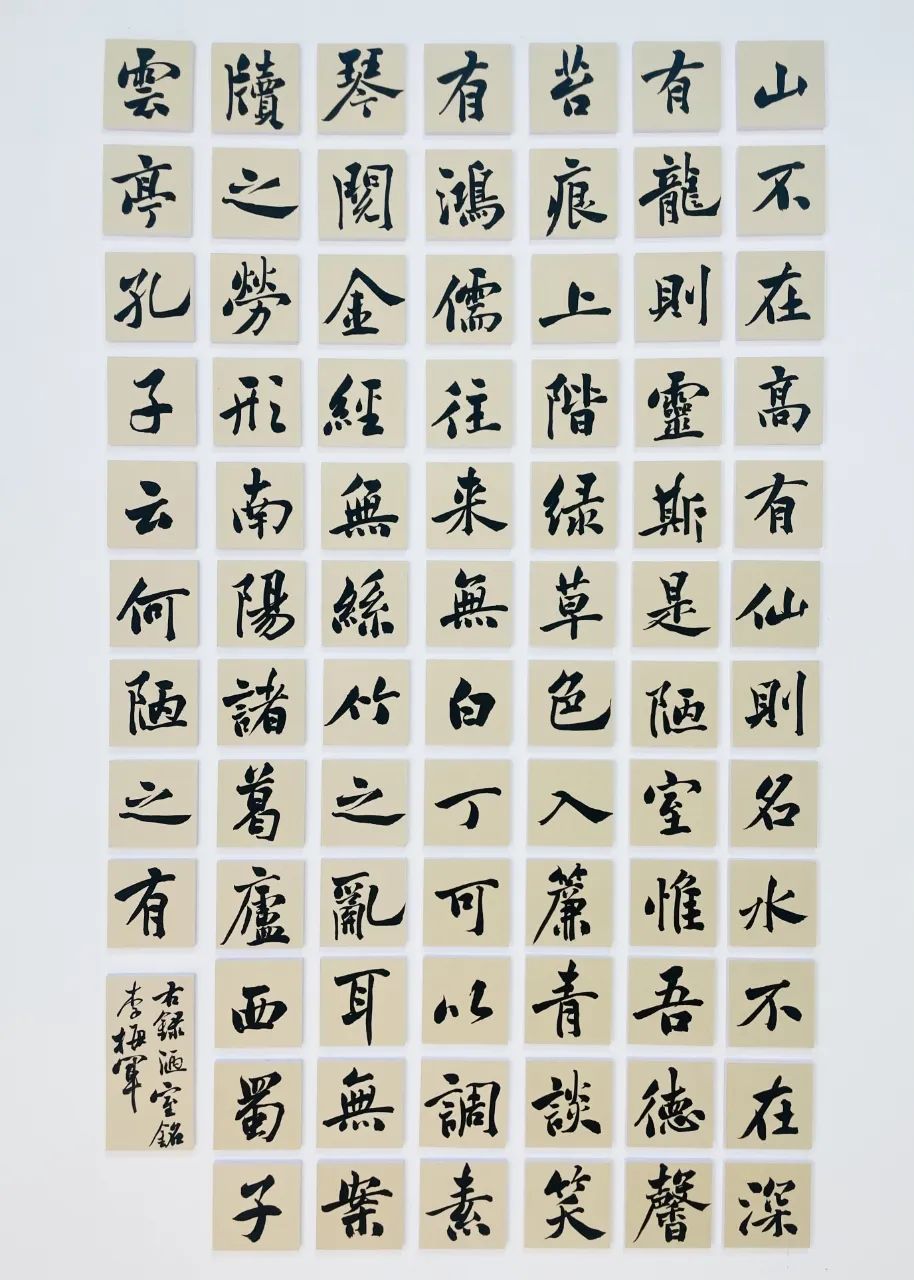 山不在高有仙則名水不在深
有龍則靈斯是陋室惟吾德馨
苔痕上階绿草色入簾青談笑
有鴻儒往来無白丁可以調素
琴閱金經無絲竹之亂耳無案
牘之勞形南陽諸葛廬西蜀子
雲亭孔子云何陋之有
右録陋室銘
李梅軍